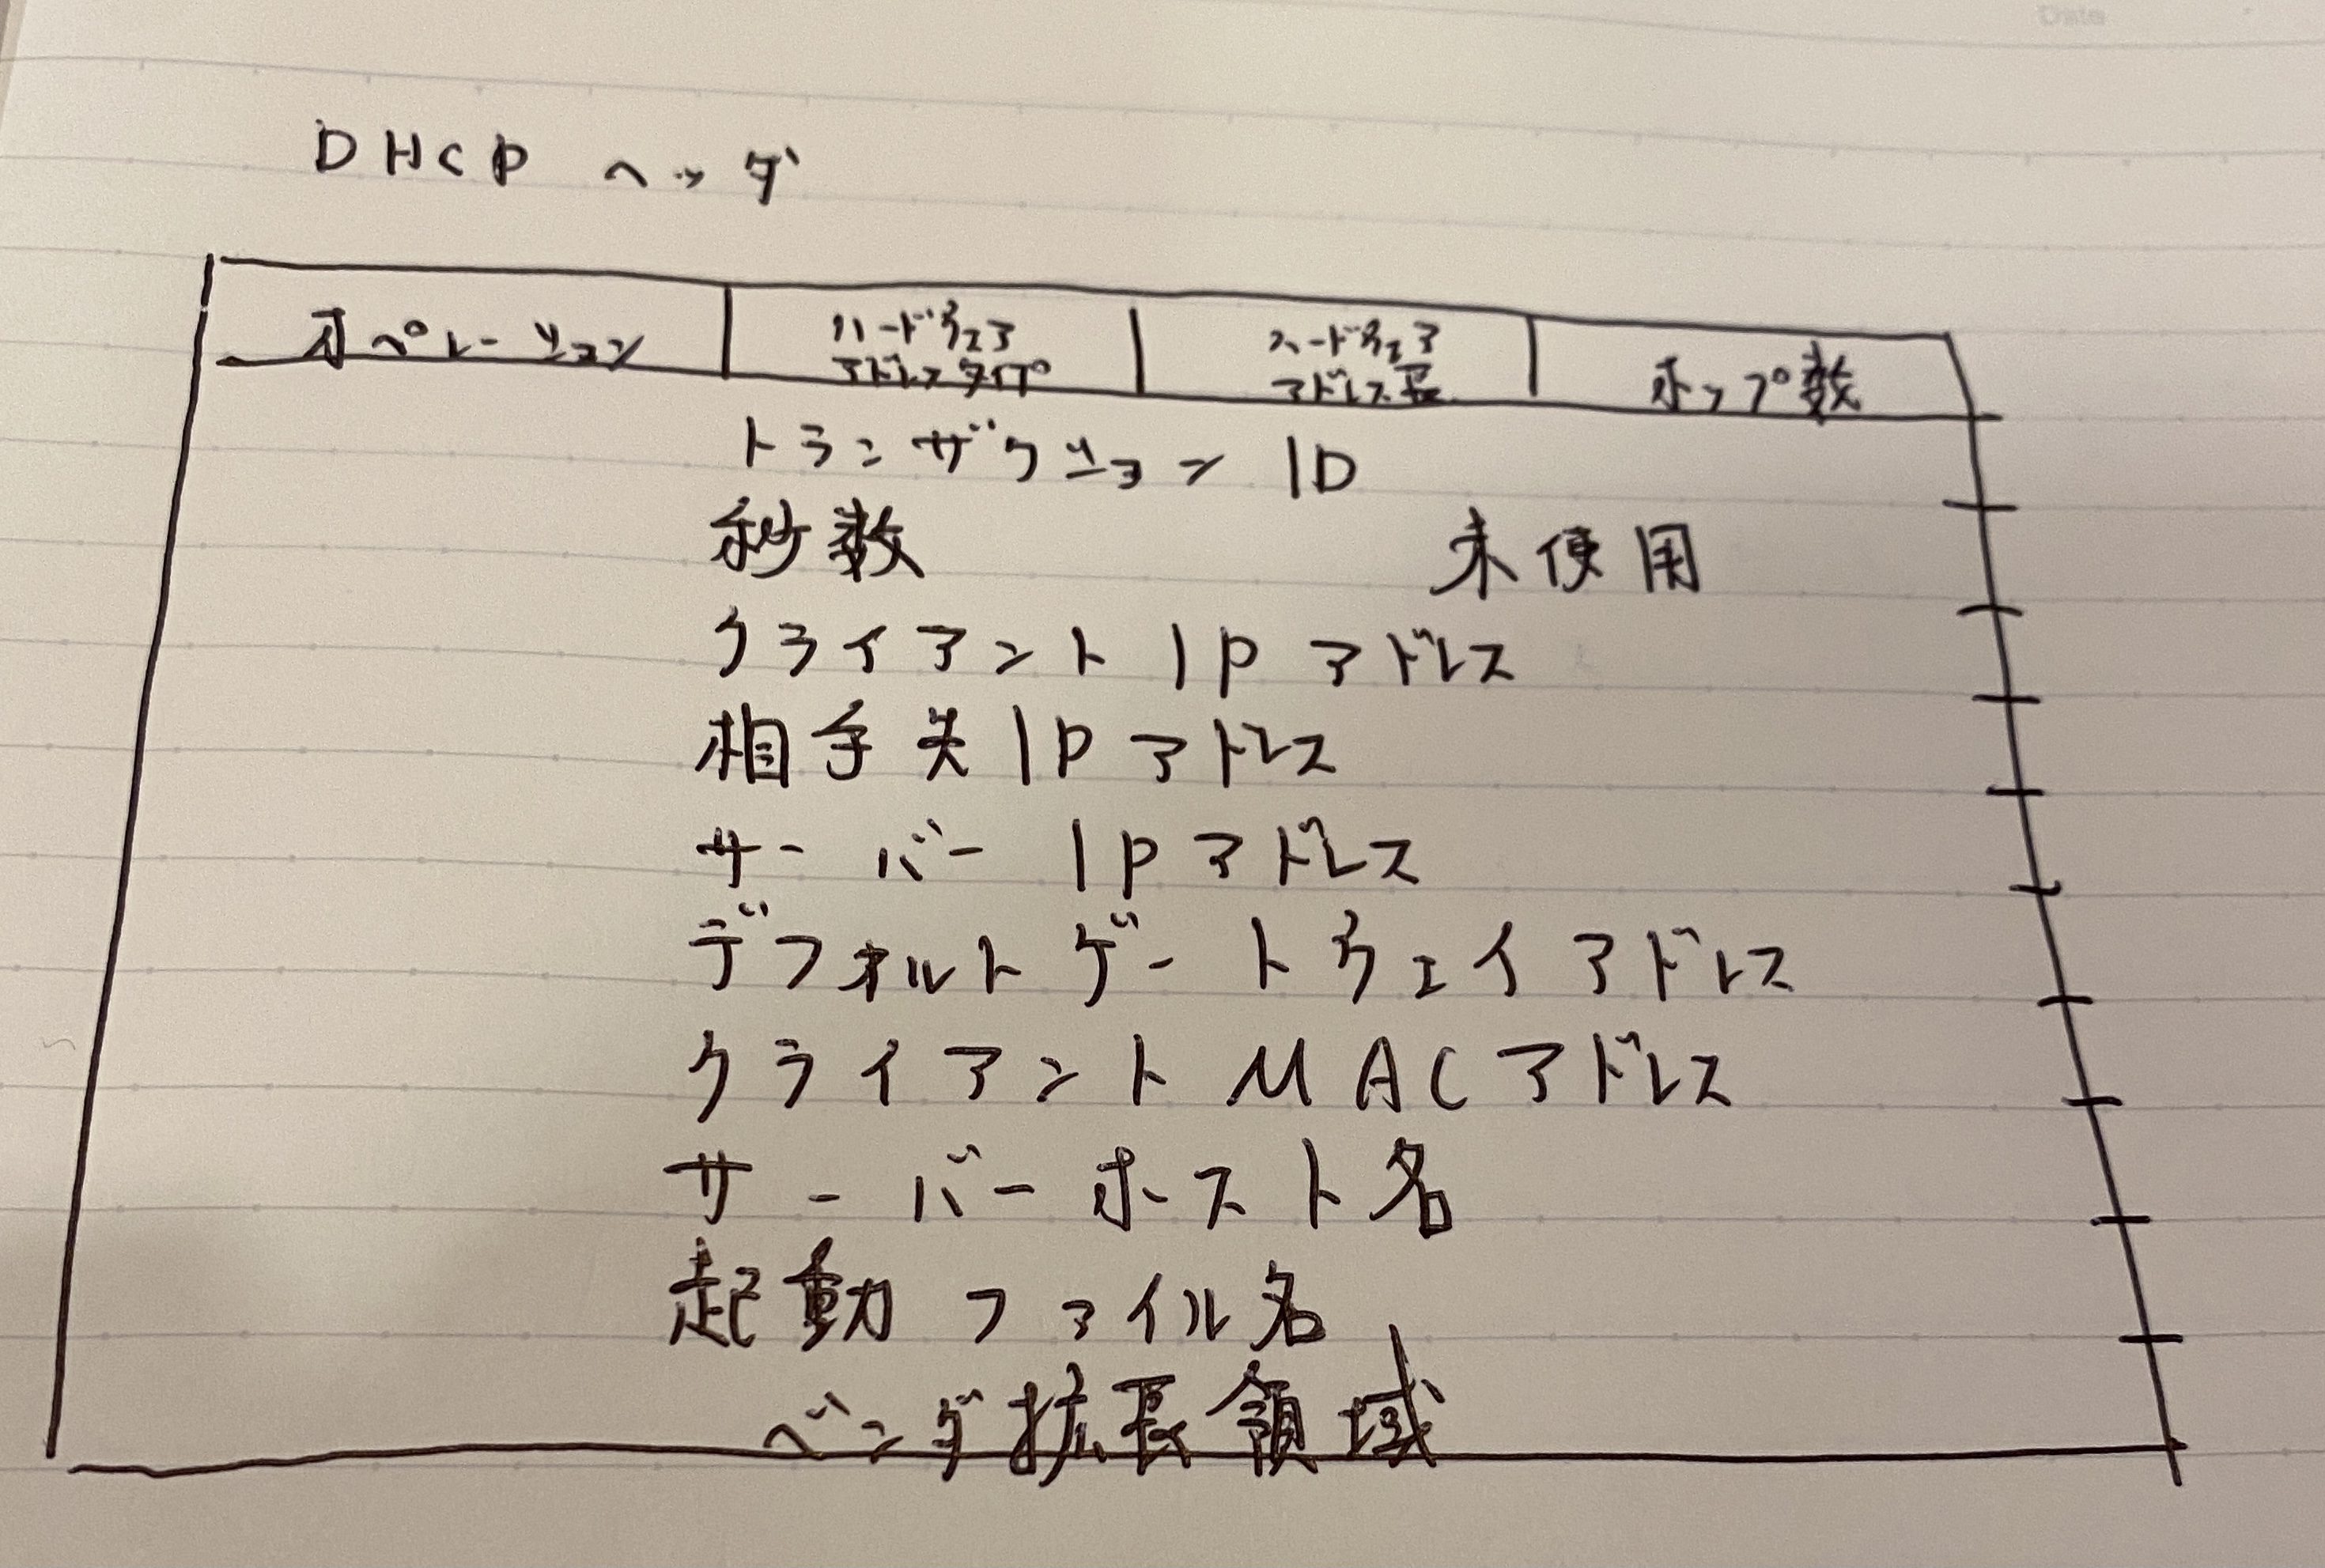 Date
DHCP ヘッダ
オペレーション ハードウェア アドレスタイプ ハードウェア アドレス長 ホップ数
トランザクション ID
秒数 未使用
クライアント IP アドレス
相手先 IP アドレス
サーバー IP アドレス
デフォルトゲートウェイアドレス
クライアント MAC アドレス
サーバーホスト名
起動ファイル名
ベンダ拡長領域